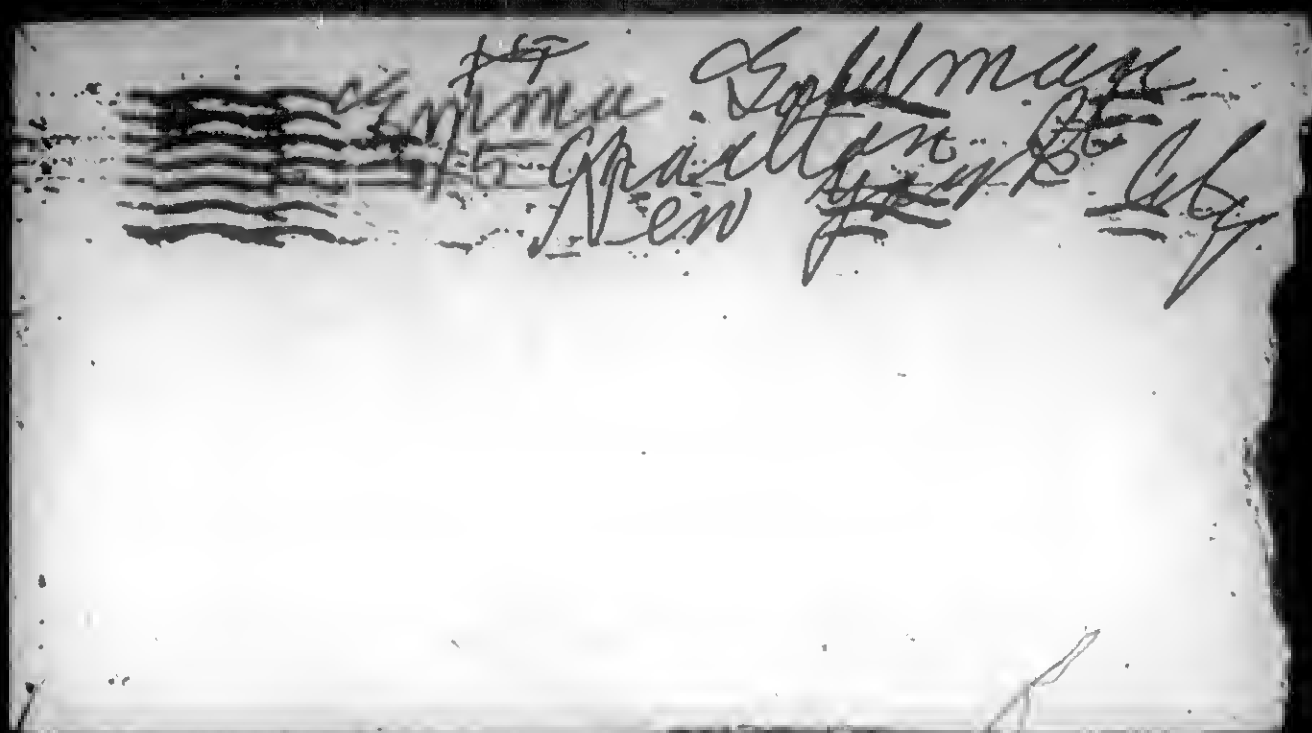 Emma Goldman
15 Grailton St
New York City